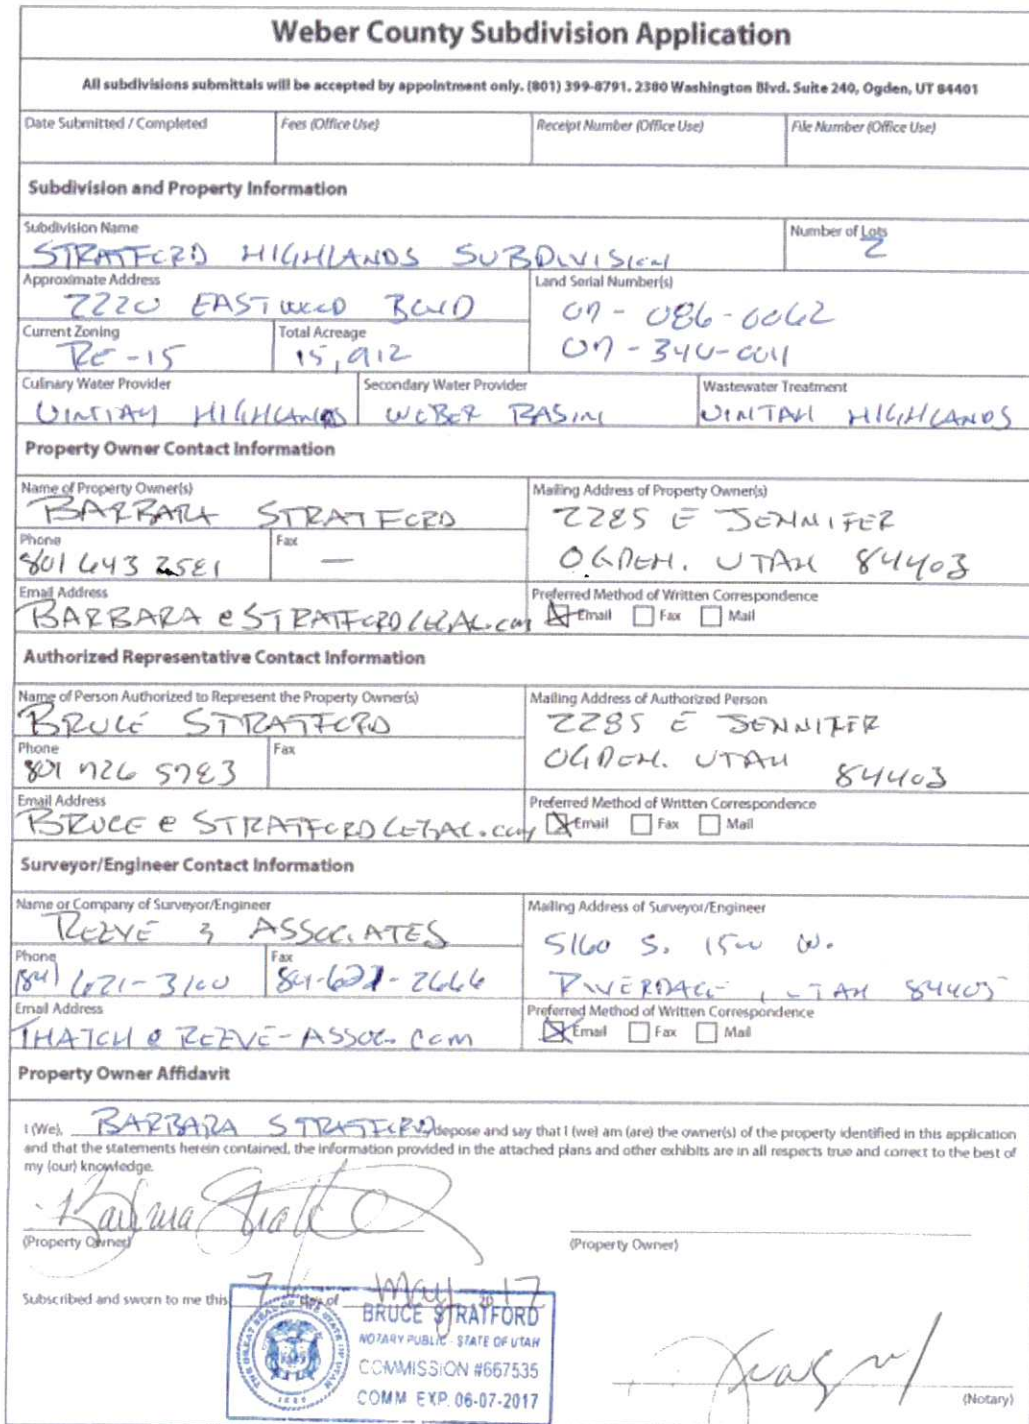 Weber County Subdivision Application
All subdivisions submittals will be accepted by appointment only. (801) 399-8791. 2380 Washington Blvd. Suite 240, Ogden, UT 84401
Date Submitted / Completed
Fees (Office Use)
Receipt Number (Office Use)
File Number (Office Use)
Subdivision and Property Information
Subdivision Name
STRATFORD HIGHLANDS SUBDIVISION
Number of Lots
2
Approximate Address
2220 EASTWOOD BLVD
Land Serial Number(s)
07-086-0062
07-340-0011
Current Zoning
RE-15
Total Acreage
15,912
Culinary Water Provider
UINTAH HIGHLANDS
Secondary Water Provider
WEBER BASIN
Wastewater Treatment
UINTAH HIGHLANDS
Property Owner Contact Information
Name of Property Owner(s)
BARBARA STRATFORD
Mailing Address of Property Owner(s)
2285 E JENNIFER
OGDEN. UTAH 84403
Phone
801 643 2581
Fax
—
Email Address
BARBARA@STRATFORDLEGAL.com
Preferred Method of Written Correspondence
Email Fax Mail
Authorized Representative Contact Information
Name of Person Authorized to Represent the Property Owner(s)
BRUCE STRATFORD
Mailing Address of Authorized Person
2285 E JENNIFER
OGDEN. UTAH 84403
Phone
801 726 5783
Fax
Email Address
BRUCE@STRATFORDLEGAL.com
Preferred Method of Written Correspondence
Email Fax Mail
Surveyor/Engineer Contact Information
Name or Company of Surveyor/Engineer
REEVE & ASSOCIATES
Mailing Address of Surveyor/Engineer
5160 S. 1500 W.
RIVERDALE, UTAH 84405
Phone
801 621-3100
Fax
801-621-2666
Email Address
THATCH@REEVE-ASSOC.com
Preferred Method of Written Correspondence
Email Fax Mail
Property Owner Affidavit
I (We), BARBARA STRATFORD, depose and say that I (we) am (are) the owner(s) of the property identified in this application
and that the statements herein contained, the information provided in the attached plans and other exhibits are in all respects true and correct to the best of
my (our) knowledge.
Barbara Stratford
(Property Owner)
(Property Owner)
Subscribed and sworn to me this 7 day of May 20 17
THE GREAT SEAL OF THE STATE OF UTAH
1896
BRUCE STRATFORD
NOTARY PUBLIC - STATE OF UTAH
COMMISSION #667535
COMM EXP. 06-07-2017
(Notary)